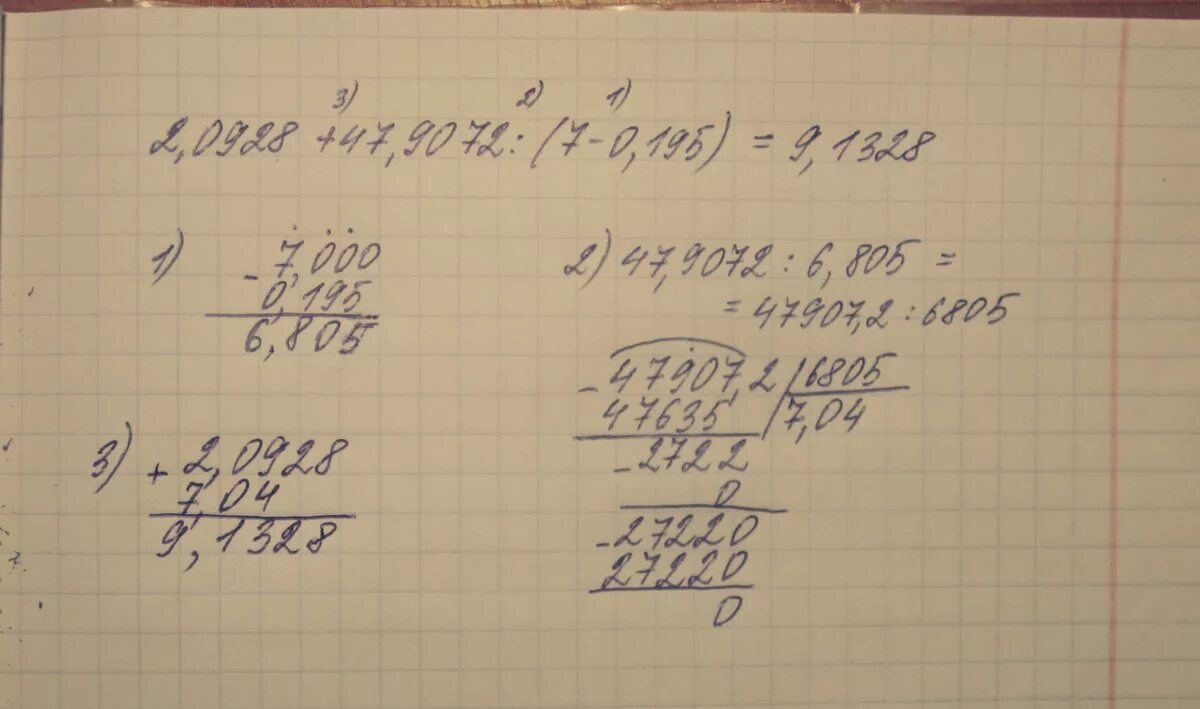 3) 2) 1)
2,0928 + 47,9072 : (7 - 0,195) = 9,1328
1) - 7,000
0,195
6,805
2) 47,9072 : 6,805 =
= 47907,2 : 6805
- 47907,2 | 6805
47635 | 7,04
- 2722
0
- 27220
27220
0
3) + 2,0928
7,04
9,1328